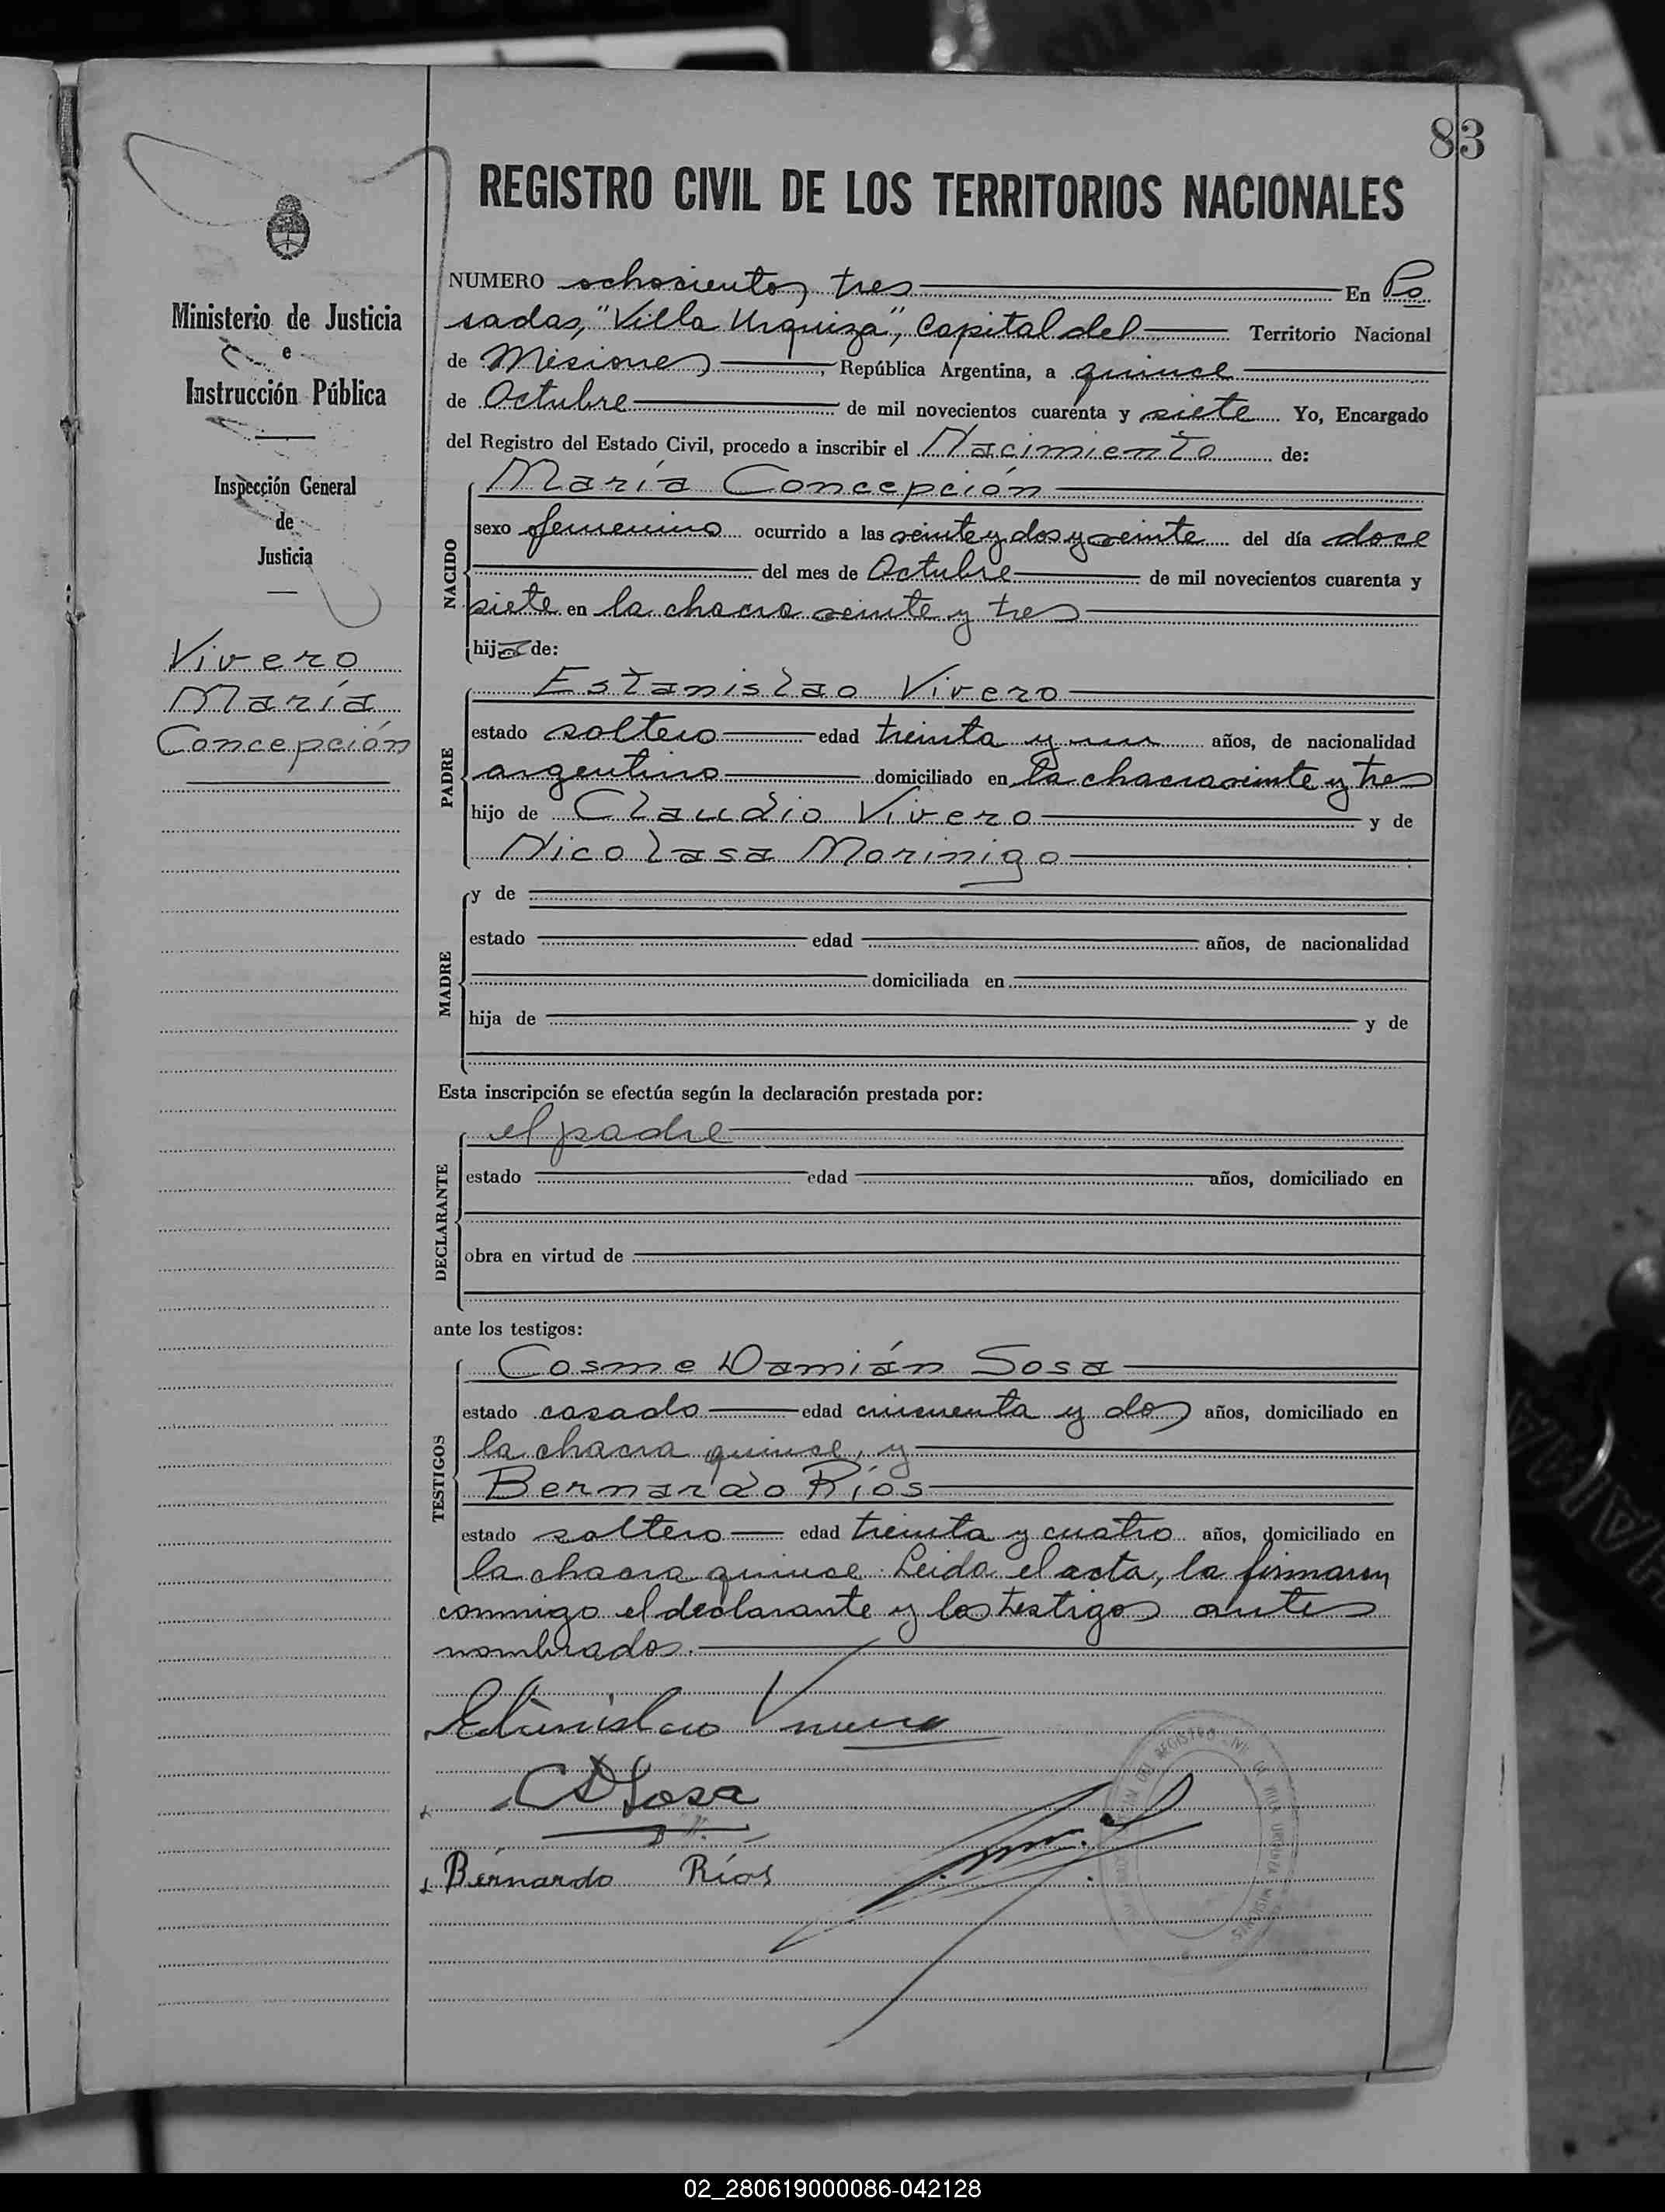 83
REGISTRO CIVIL DE LOS TERRITORIOS NACIONALES
Ministerio de Justicia
e
Instrucción Pública
Inspección General
de
Justicia
Vivero
María
Concepción
NUMERO ochocientos tres En Po
sadas, "Villa Urquiza", Capital del Territorio Nacional
de Misiones, República Argentina, a quince
de Octubre de mil novecientos cuarenta y siete Yo, Encargado
del Registro del Estado Civil, procedo a inscribir el Nacimiento de:
María Concepción
NACIDO
sexo femenino ocurrido a las veinte y dos y veinte del día doce
del mes de Octubre de mil novecientos cuarenta y
siete en la chacra veinte y tres
hija de:
Estanislao Vivero
PADRE
estado soltero edad treinta y un años, de nacionalidad
argentino domiciliado en la chacra veinte y tres
hijo de Claudio Vivero y de
Nicolasa Morinigo
MADRE
y de
estado edad años, de nacionalidad
domiciliada en
hija de y de
Esta inscripción se efectúa según la declaración prestada por:
el padre
DECLARANTE
estado edad años, domiciliado en
obra en virtud de
ante los testigos:
TESTIGOS
Cosme Damián Sosa
estado casado edad cincuenta y dos años, domiciliado en
la chacra quince, y
Bernardo Ríos
estado soltero edad treinta y cuatro años, domiciliado en
la chacra quince. Leida el acta, la firmaron
conmigo el declarante y los testigos antes
nombrados.
Estanislao Vivero
CDSosa
Bernardo Ríos
REGISTRO CIVIL DE VILLA URQUIZA MISIONES
02_280619000086-042128